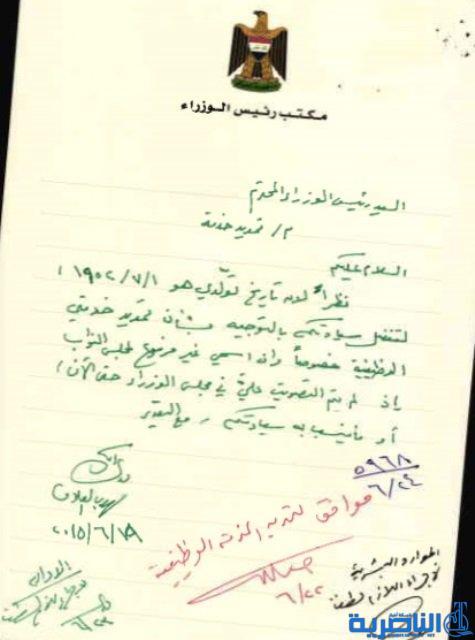 مكتب رئيس الوزراء
السيد رئيس الوزراء المحترم
م/ تمديد خدمة
السلام عليكم
نظراً لان تاريخ تولدي هو ١٩٥٢/٧/١،
لتفضل سيادتكم بالتوجيه بشأن تمديد خدمتي
الوظيفية خصوصاً وان اسمي غير مرفوع لمجلس النواب
إذ لم يتم التصويت عليّ في مجلس الوزراء حتى الآن،
أو ما ينسب به سيادتكم، مع التقدير
٥٩٦٨
٦/٢٤
مهدي العلاق
٢٠١٥/٦/١٨
موافق لتمديد المدة الوظيفية
٦/٢٢
الموارد البشرية
الناصرية